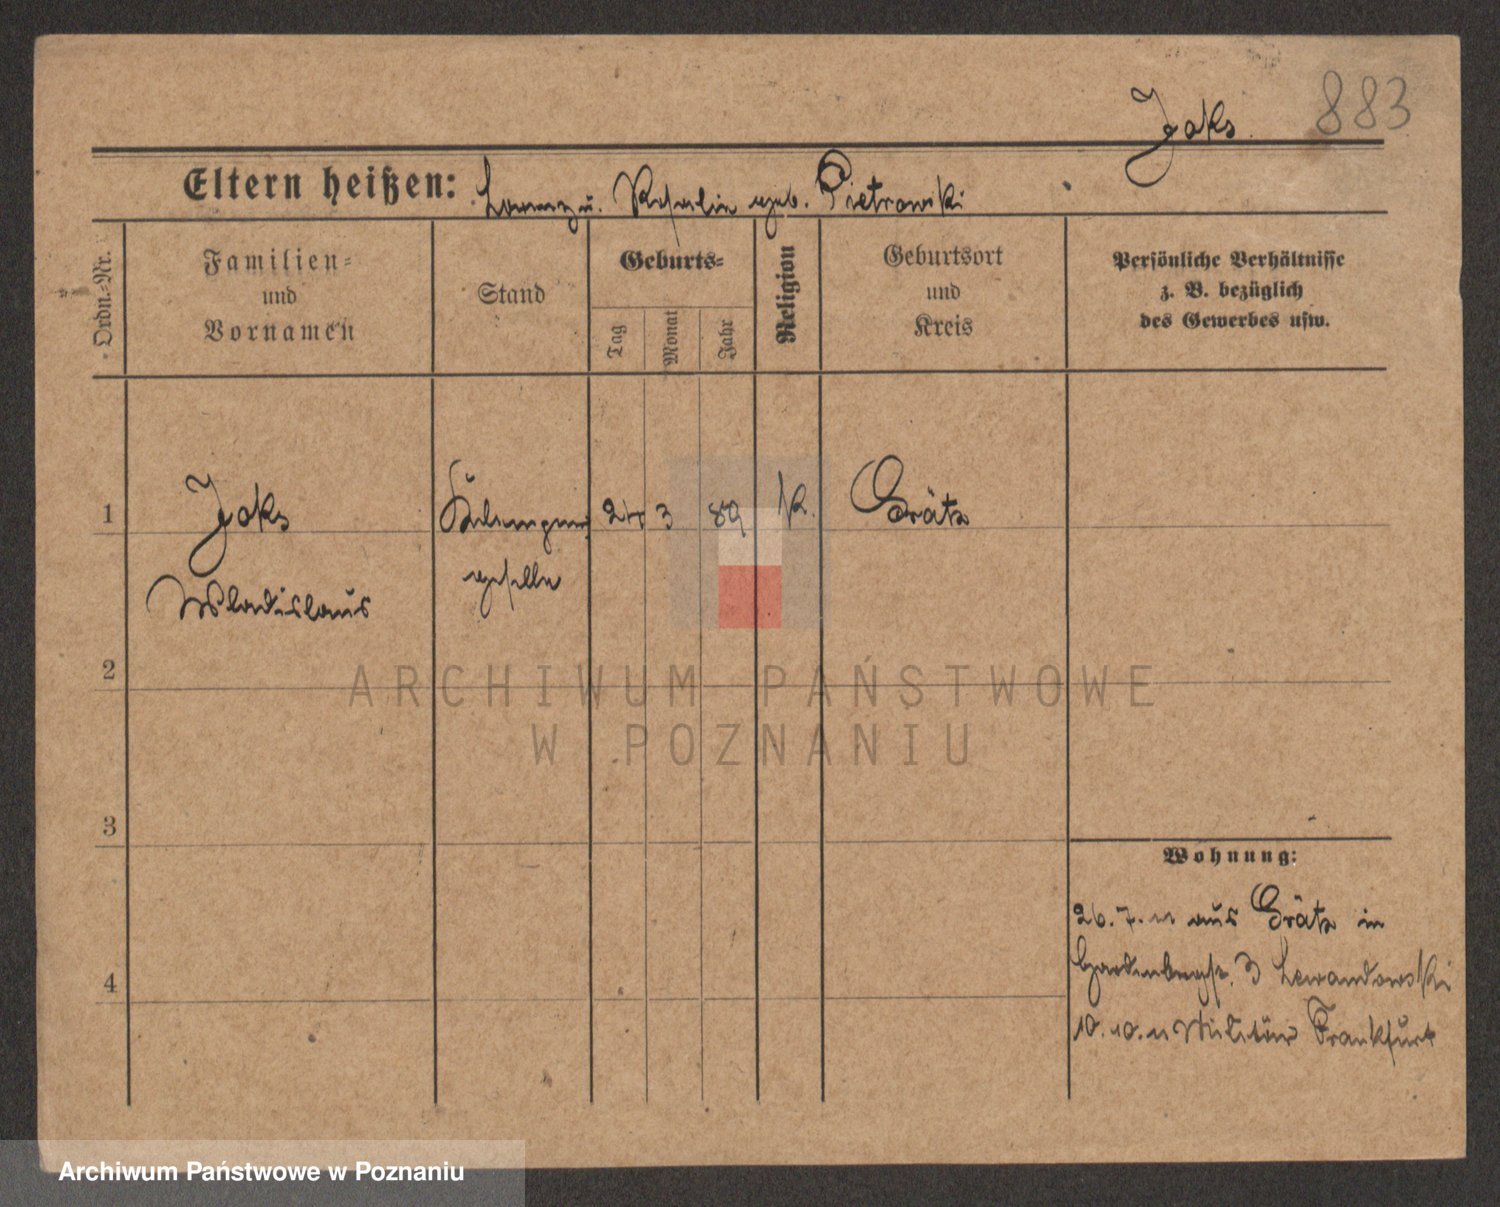 Jaks
883
Eltern heißen: Lorenz u. Rosalie geb. Pietrowski
Ordn.-Nr.
Familien- und Vornamen
Stand
Geburts-
Tag
Monat
Jahr
Religion
Geburtsort und Kreis
Persönliche Verhältnisse
z. B. bezüglich
des Gewerbes usw.
1
Jaks
24 3 89
K.
Grätz
geselle
Wladislaus
2
ARCHIWUM PAŃSTWOWE
W POZNANIU
3
Wohnung:
26.7.11 aus Grätz in
3 Lewandowski
4
10.10.11 Militär Frankfurt
Archiwum Państwowe w Poznaniu